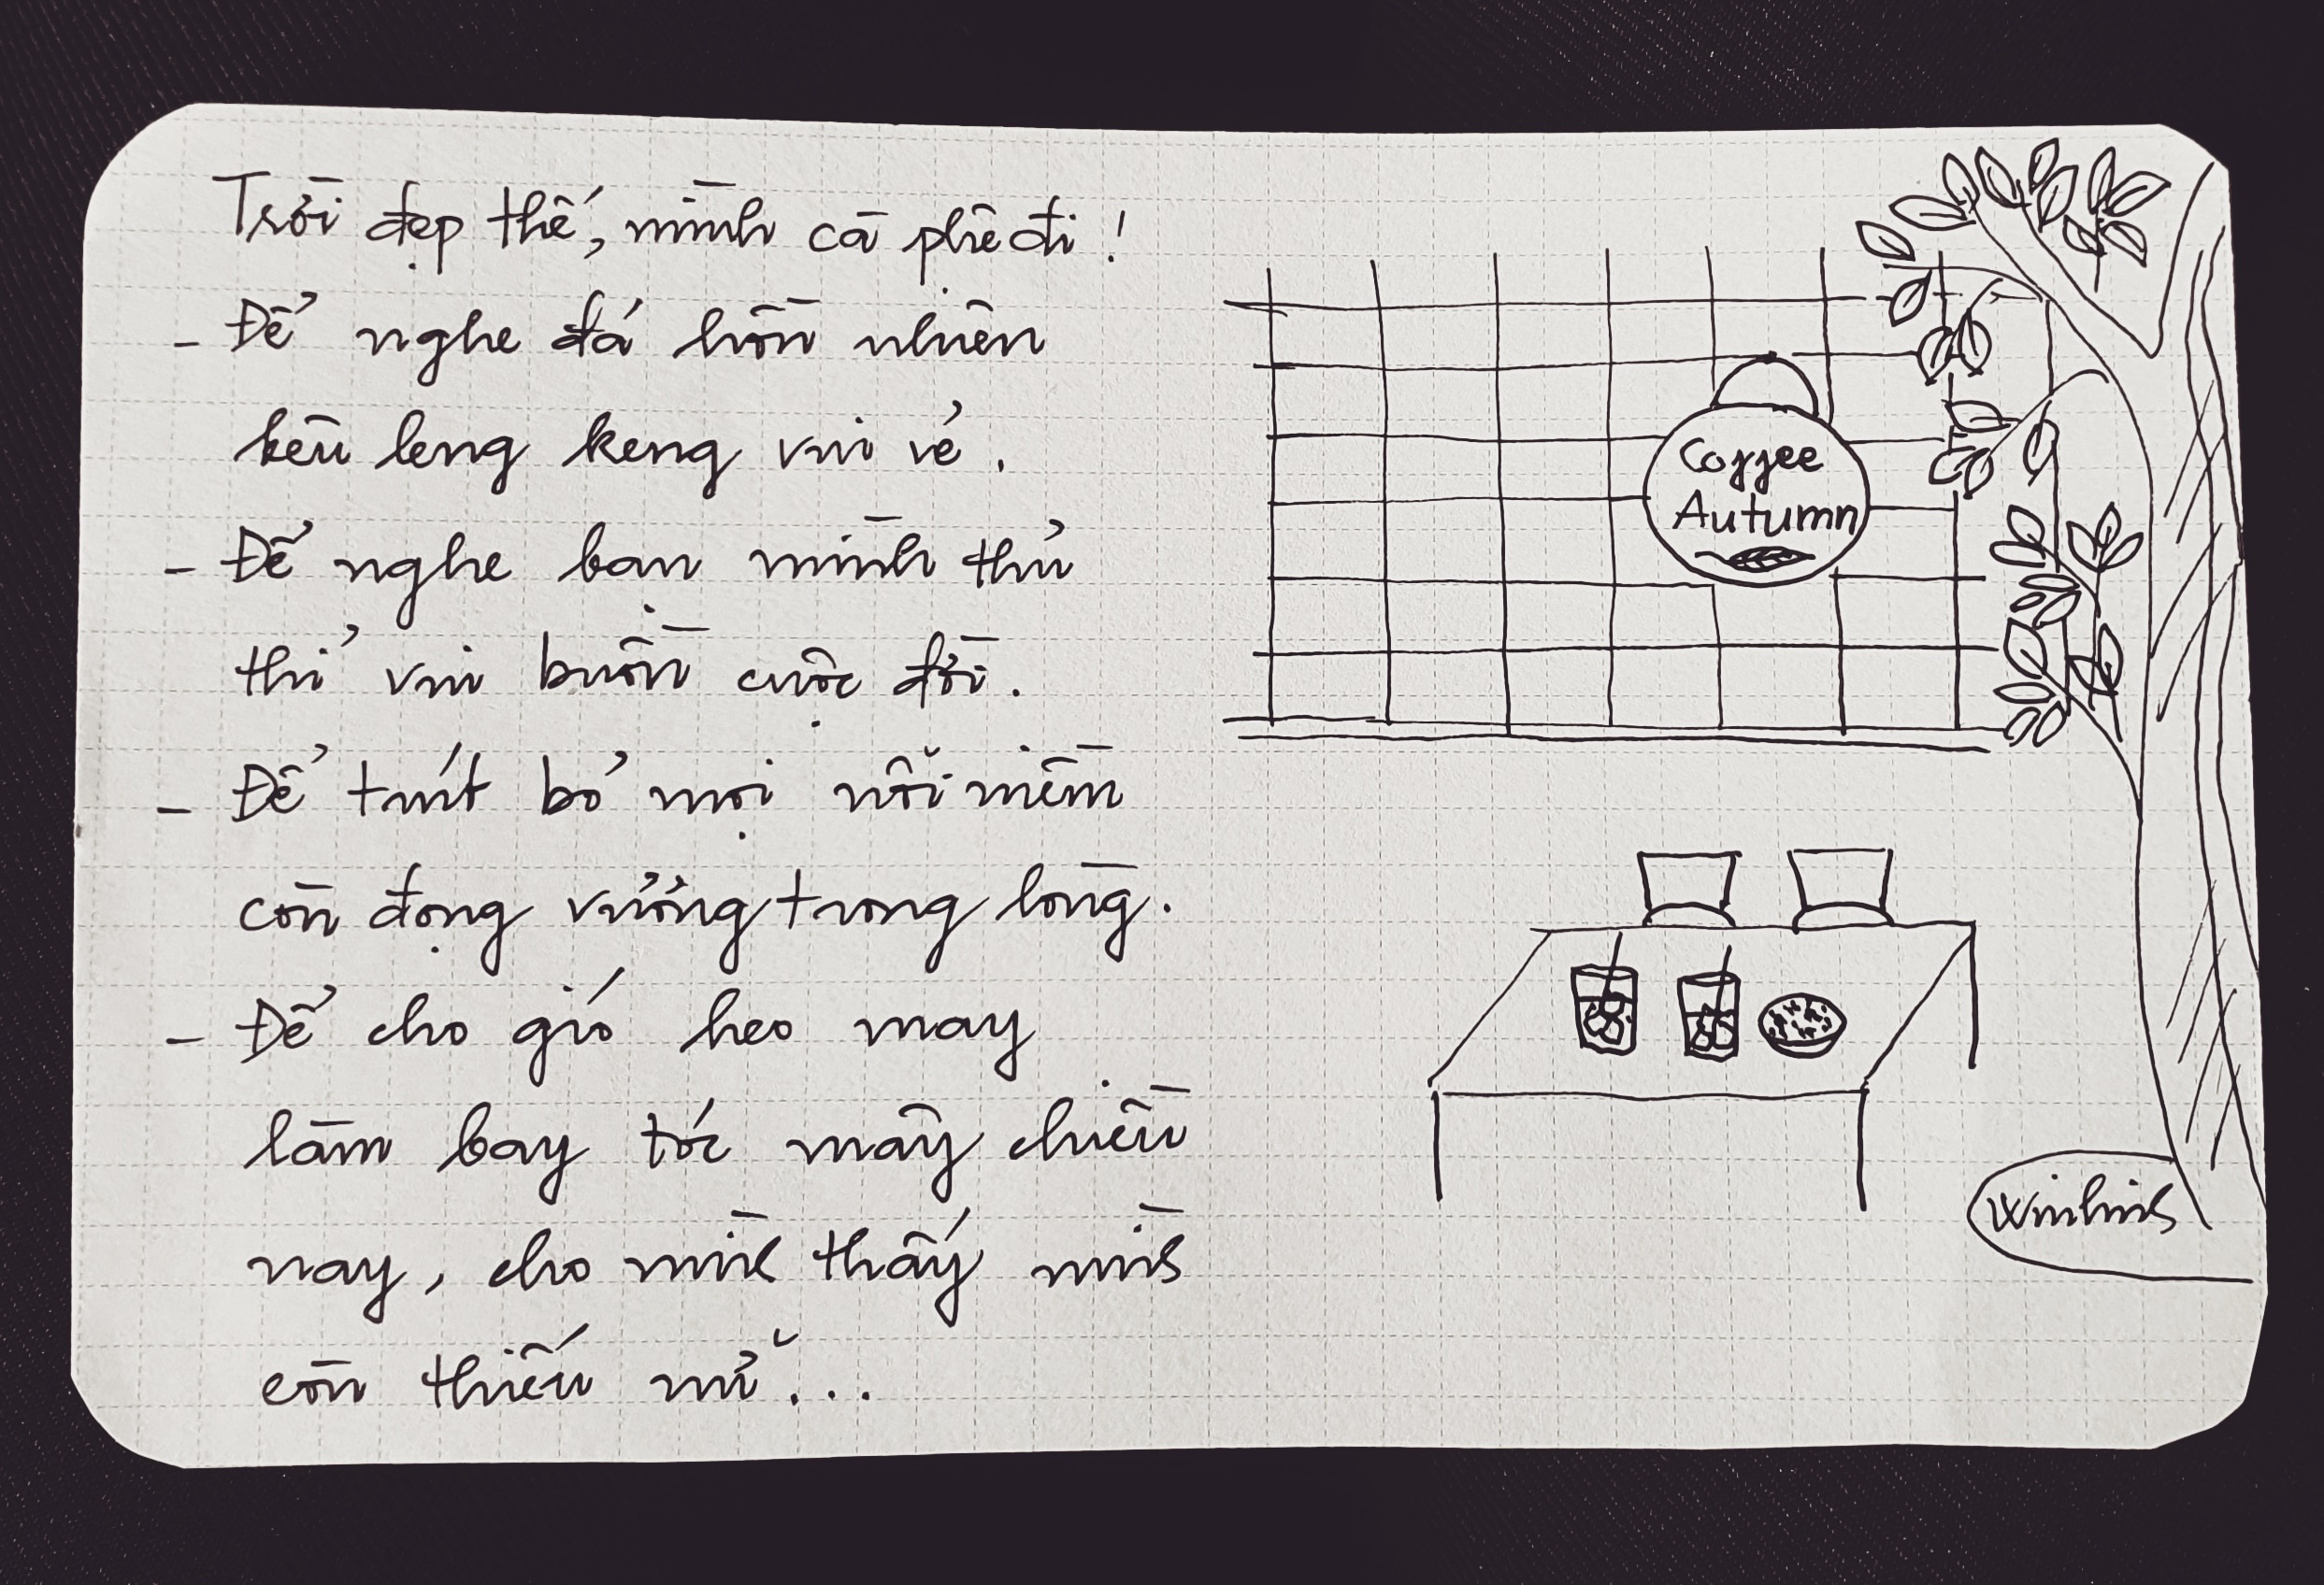 Trời đẹp thế, mình cà phê đi!
- Để nghe đá hồn nhiên
kêu leng keng vui vẻ.
- Để nghe bạn mình thủ
thỉ vui buồn cuộc đời.
- Để trút bỏ mọi nỗi niềm
còn đọng vướng trong lòng.
- Để cho gió heo may
làm bay tóc mây chiều
nay, cho mình thấy mình
còn thiếu nữ...
Coffee
Autumn
Winlinls